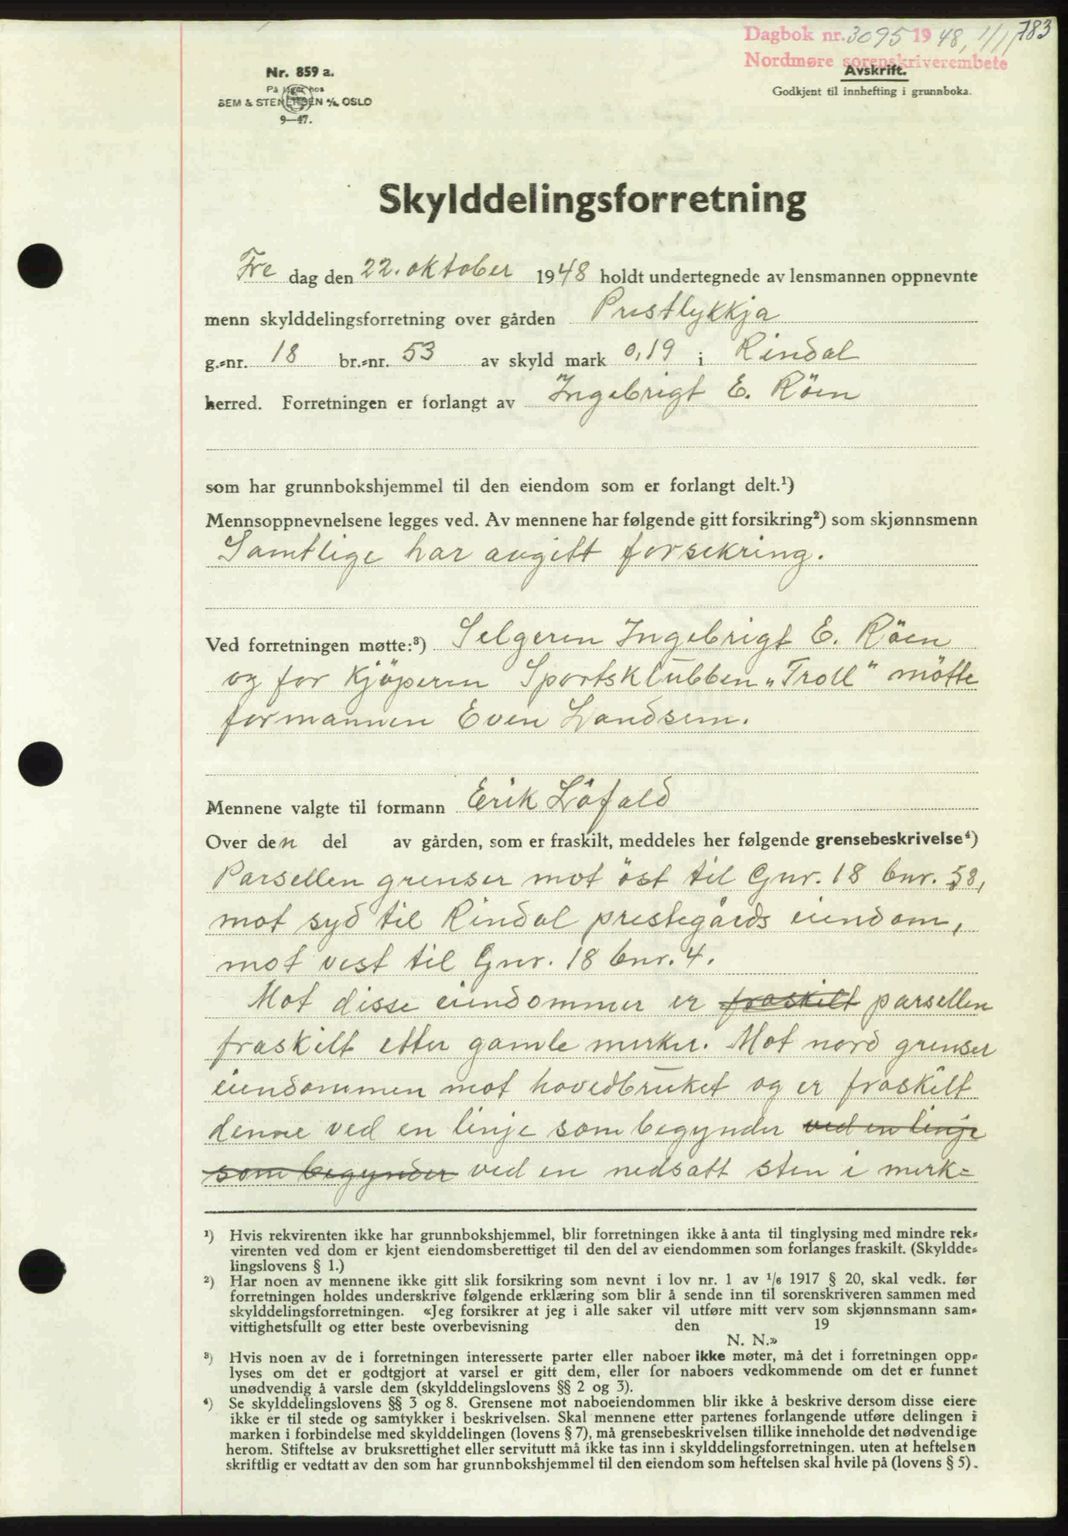 783
Dagbok nr. 3095 1948, 1/11
Nordmøre sorenskriverembete
Avskrift.
Godkjent til innhefting i grunnboka.
Nr. 859 a.
På lager hos
SEM & STENERSEN A/S, OSLO
9—47.
Skylddelingsforretning
Fre dag den 22. oktober 1948 holdt undertegnede av lensmannen oppnevnte
menn skylddelingsforretning over gården Prestlykkja
g.-nr. 18 br.-nr. 53 av skyld mark 0,19 i Rindal
herred. Forretningen er forlangt av Ingebrigt E. Röen
som har grunnbokshjemmel til den eiendom som er forlangt delt.¹)
Mennsoppnevnelsene legges ved. Av mennene har følgende gitt forsikring²) som skjønnsmenn
Samtlige har avgitt forsekring.
Ved forretningen møtte:³) Selgeren Ingebrigt E. Röen
og for kjöperen Sportsklubben „Troll" mötte
formannen Even Landsem.
Mennene valgte til formann Erik Löfald
Over den del av gården, som er fraskilt, meddeles her følgende grensebeskrivelse⁴)
Parsellen grenser mot öst til Gnr. 18 bnr. 58,
mot syd til Rindal prestegårds eiendom,
mot vest til Gnr. 18 bnr. 4.
Mot disse eiendommer er fraskilt parsellen
fraskilt etter gamle merker. Mot nord grenser
eiendommen mot hovedbruket og er fraskilt
denne ved en linje som begynder ved en linje
som begynder ved en nedsatt sten i merk-
¹) Hvis rekvirenten ikke har grunnbokshjemmel, blir forretningen ikke å anta til tinglysing med mindre rek-
virenten ved dom er kjent eiendomsberettiget til den del av eiendommen som forlanges fraskilt. (Skyldde-
lingslovens § 1.)
²) Har noen av mennene ikke gitt slik forsikring som nevnt i lov nr. 1 av 1/6 1917 § 20, skal vedk. før
forretningen holdes underskrive følgende erklæring som blir å sende inn til sorenskriveren sammen med
skylddelingsforretningen. «Jeg forsikrer at jeg i alle saker vil utføre mitt verv som skjønnsmann sam-
vittighetsfullt og etter beste overbevisning den 19
N. N.»
³) Hvis noen av de i forretningen interesserte parter eller naboer ikke møter, må det i forretningen opp-
lyses om det er godtgjort at varsel er gitt dem, eller for naboers vedkommende om det er funnet
unødvendig å varsle dem (skylddelingslovens §§ 2 og 3).
⁴) Se skylddelingslovens §§ 3 og 8. Grensene mot naboeiendommen blir ikke å beskrive dersom disse eiere
ikke er til stede og samtykker i beskrivelsen. Skal mennene etter partenes forlangende utføre delingen i
marken i forbindelse med skylddelingen (lovens § 7), må grensebeskrivelsen tillike inneholde det nødvendige
herom. Stiftelse av bruksrettighet eller servitutt må ikke tas inn i skylddelingsforretningen. uten at heftelsen
skriftlig er vedtatt av den som har grunnbokshjemmel til den eiendom som heftelsen skal hvile på (lovens § 5).